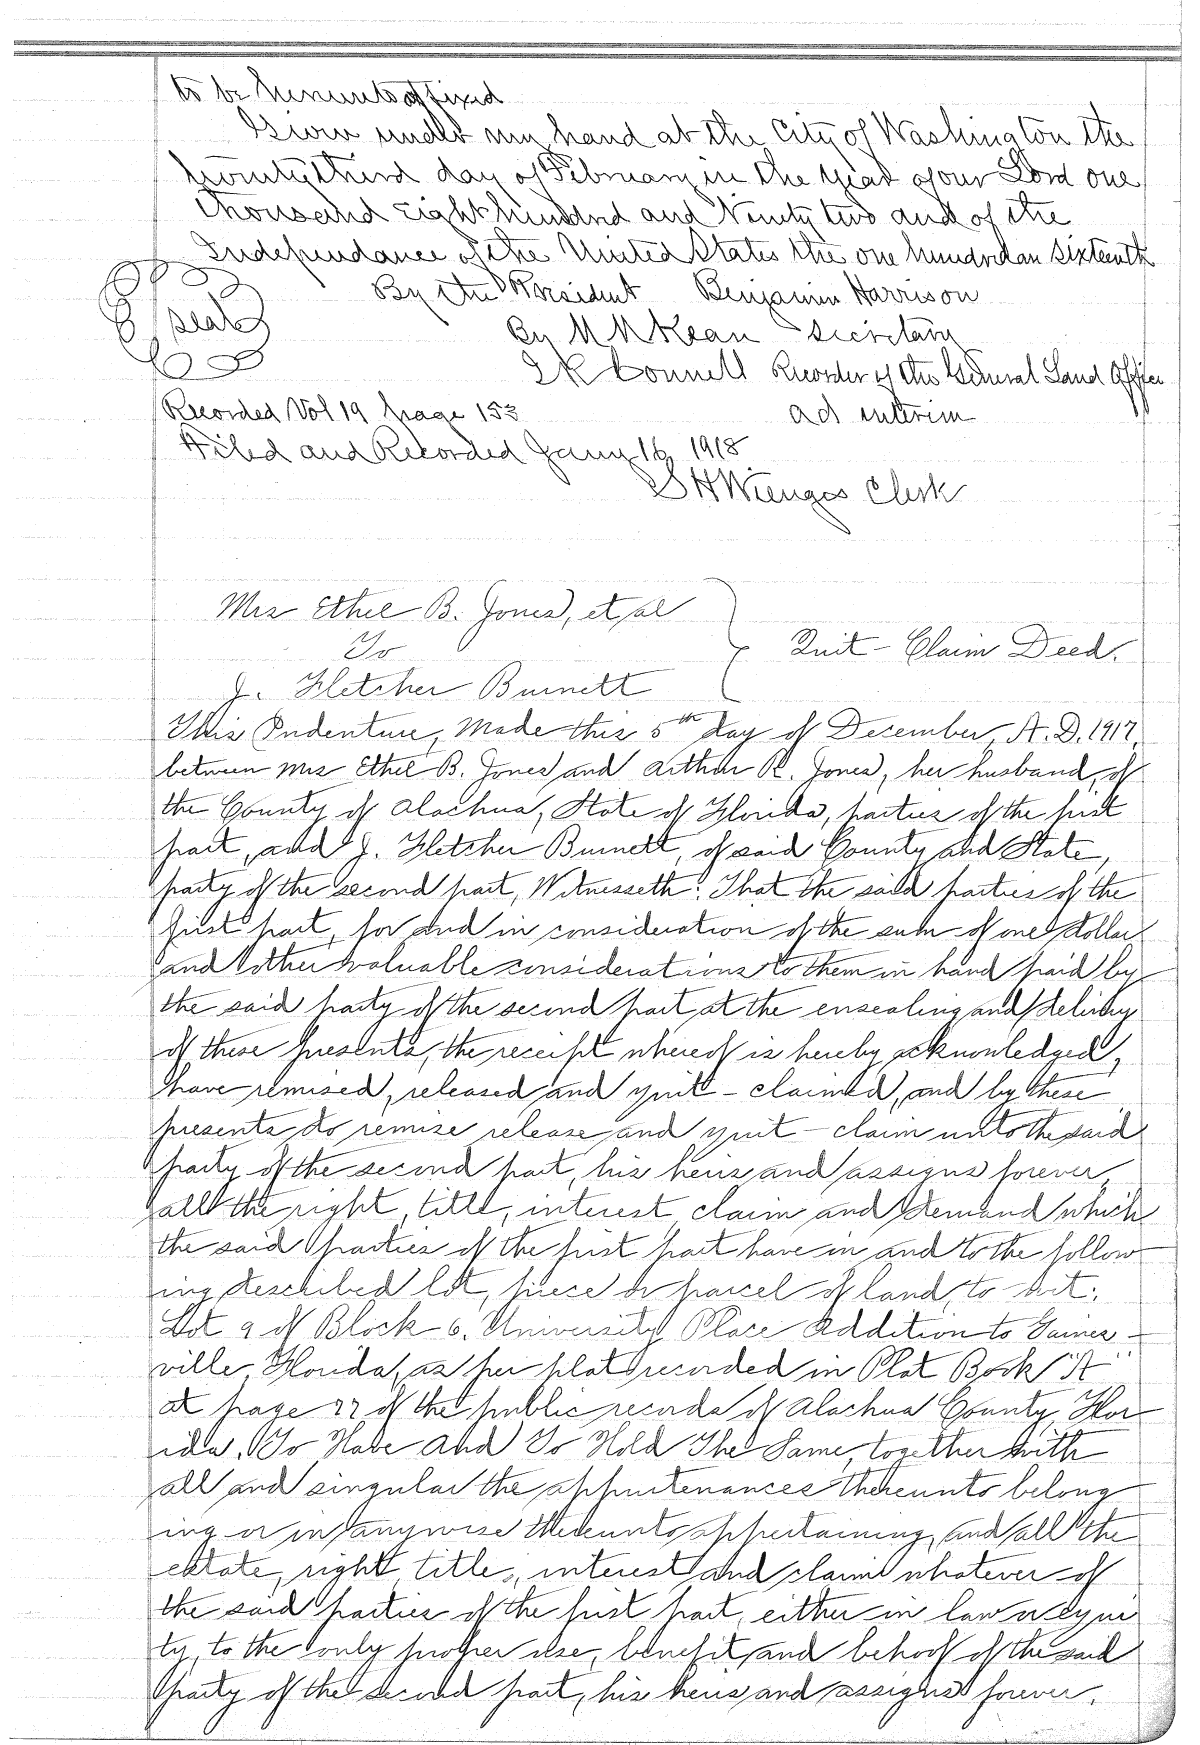 to be hereunto affixed
Given under my hand at the City of Washington the
twenty third day of February in the year of our Lord one
thousand eight hundred and Ninety two and of the
Independance of the United States the one hundred an sixteenth
By the President Benjamin Harrison
Seal
By M McKean Secretary
Connell Recorder of the General Land Office
Recorded Vol 19 page 153
ad interim
Filed and Recorded Jany 16, 1918
S H Wienges Clerk
Mrs Ethel B. Jones, et al
To
Quit-Claim Deed.
J. Fletcher Burnett
This Indenture, Made this 5th day of December, A.D. 1917,
between Mrs Ethel B. Jones and Arthur R. Jones, her husband, of
the County of Alachua, State of Florida, parties of the first
part, and J. Fletcher Burnett, of said County and State,
party of the second part, Witnesseth: That the said parties of the
first part, for and in consideration of the sum of one dollar
and other valuable considerations to them in hand paid by
the said party of the second part, at the ensealing and delivery
of these presents, the receipt whereof is hereby acknowledged,
have remised, released and quit-claimed, and by these
presents do remise release and quit-claim unto the said
party of the second part, his heirs and assigns forever,
all the right, title, interest claim and demand which
the said parties of the first part have in and to the follow
ing described lot, piece or parcel of land, to wit:
Lot 9 of Block 6. University Place Addition to Gaines-
ville, Florida, as per plat recorded in Plat Book "A"
at page 77 of the public records of Alachua County, Flor-
ida. To Have And To Hold The Same, together with
all and singular the appurtenances thereunto belong
ing or in anywise thereunto appertaining, and all the
estate, right, title, interest and claim whatever of
the said parties of the first part, either in law or equi
ty, to the only proper use, benefit, and behoof of the said
party of the second part, his heirs and assigns forever.